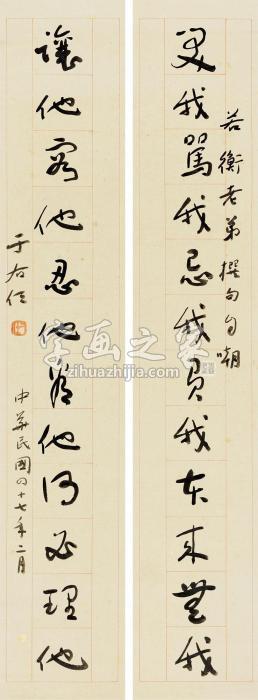 若衡老弟撰句自嘲
我罵我忌我負我本來無我
讓他容他忍他他何必理他
于右任
中華民國四十七年二月
字画之家
zihuazhijia.com